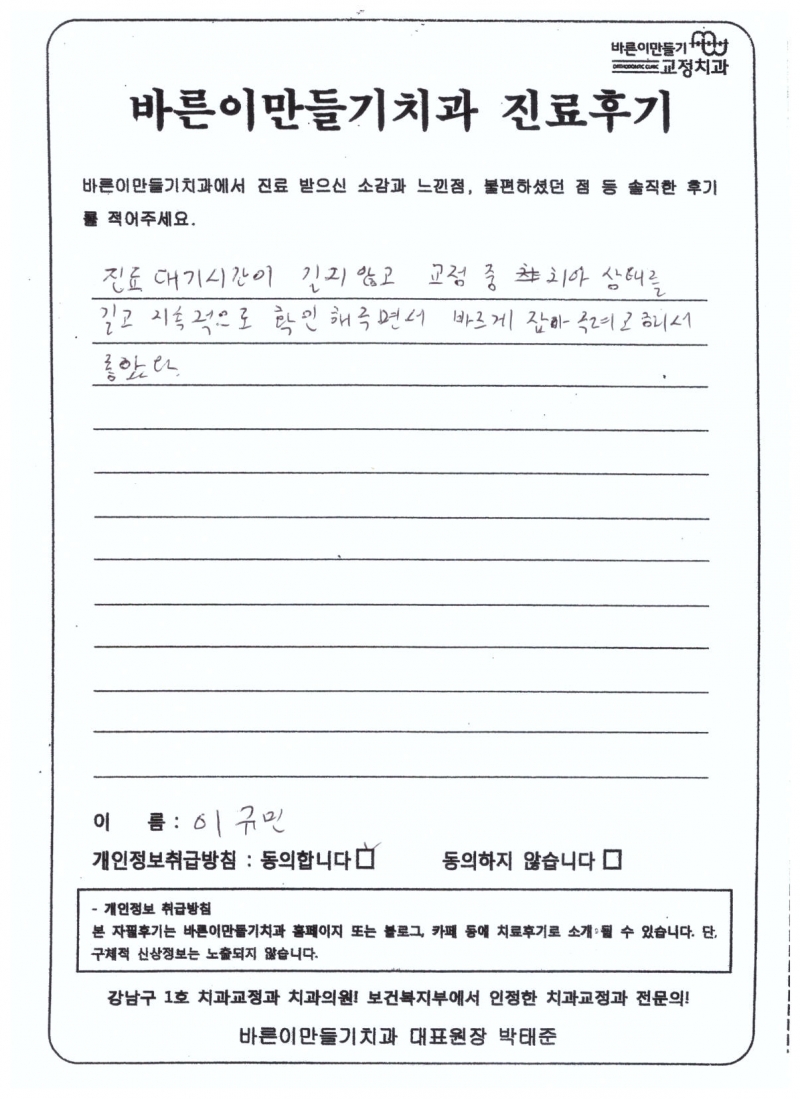 바른이만들기
ORTHODONTIC CLINIC 교정치과
바른이만들기치과 진료후기
바른이만들기치과에서 진료 받으신 소감과 느낀점, 불편하셨던 점 등 솔직한 후기
를 적어주세요.
진료 대기시간이 길지 않고 교정 중 치아 상태를
길고 지속적으로 확인해주면서 바르게 잡아주려고 해서
좋았다.
이 름 : 이규민
개인정보취급방침 : 동의합니다 동의하지 않습니다
- 개인정보 취급방침
본 자필후기는 바른이만들기치과 홈페이지 또는 블로그, 카페 등에 치료후기로 소개 될 수 있습니다. 단,
구체적 신상정보는 노출되지 않습니다.
강남구 1호 치과교정과 치과의원! 보건복지부에서 인정한 치과교정과 전문의!
바른이만들기치과 대표원장 박태준